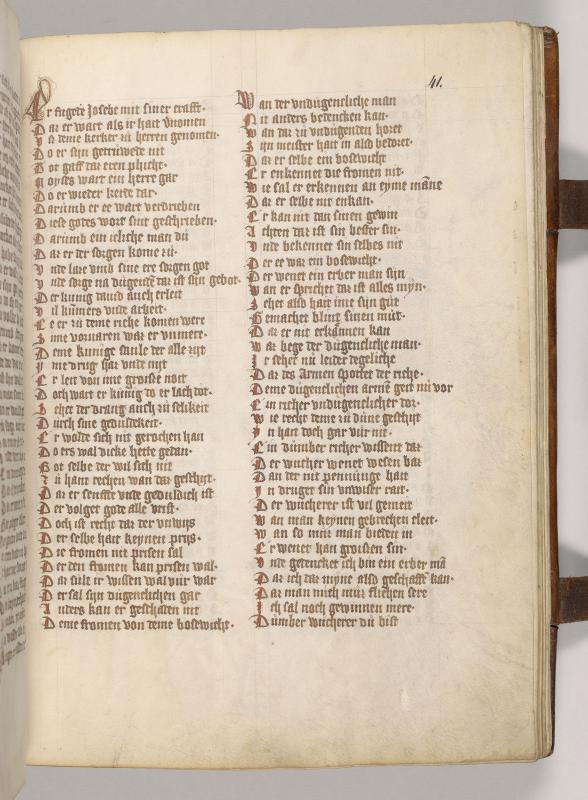 41.
Er fugete Josebe mit siner crafft·
Daz er wart als ir hait vnomen
Vz deme kerker zu herren genomen·
Do er sin getruwede nit
Got gaff daz eren plicht·
Moyses wart ein herre gar
Do er wieder kerde dar·
Darumb er ee wart verdrieben
Diese godes wort sint geschrieben·
Darumb ein icliche man du
Daz er der sorgen kome zu·
Vnde laze vmb sine ere sorgen got
Vnde sorge na dugende daz ist sin gebot·
Der kunig dauid auch erleit
Vil kumers vnde arbeit·
Ee er zu deme riche komen were
Sine vorvaren waz er vnmere·
Deme kunige saule der alle zijt
Ime drug haz vnde nijt
Er leit von ime groisse noit
Doch wart er kunig do er lach dot·
Sehet der drang auch zu selikeit
Durch sine gedultekeit·
Er wolde sich nit gerochen han
Do ers wal dicke hette gedan·
Got selbe der wil sich nit
Zu hant rechen wan daz geschijt·
Daz er senffte vnde geduldich ist
Der volget gode alle vrist·
Doch ist recht daz der vnwijs
Der selbe hait keynen prijs·
Die fromen nit prisen sal
Der den fromen kan prisen wal·
Daz sult ir wissen wal vur war
Der sal sijn dugentlichen gar
Anders kan er geschaden nit
Deme fromen von deme bosewicht·
Wan der vndugentliche man
Nit anders bedencken kan·
Wan daz zu vndugenden horet
Sijn meister hait in also bedoret·
Daz er selbe ein bosewicht
Er enkennet die fromen nit·
Wie sal er erkennen an eyme māne
Daz er selbe nit enkan·
Er kan nit dan sinen gewin
Achten daz ist sin bester sin·
Vnde bekennet sin selbes nit
Der ee waz ein bosewicht·
Der wenet ein erber man sijn
Wan er sprechet daz ist alles myn·
Sehet also hait ime sijn gut
Gemachet blint sinen mut·
Daz er nit erkānnen kan
Waz bege der dugentliche man·
Ir sehet nu leider degeliche
Daz des Armen spottet der riche·
Deme dugentlichen armē geit nu vor
Ein richer vndugentlicher dor·
Wie recht deme zu dune geschijt
In hart doch gar vur nit·
Ein dumber richer wissent daz
Der wucher wenet wesen baz
Dan der nit pennunge hait
In druget sin vnwiser rait·
Der wucherer ist vil gemeit
Wan man keynen gebrechen cleit·
Wan so muz man bieden in
Er wenet han groissen sin·
Vnde gedencket ich bin ein erber mā
Daz ich daz myne also geschaffē kan·
Daz man mich muz fliehen sere
Ich sal noch gewinnen mere·
Dumber wucherer du bist